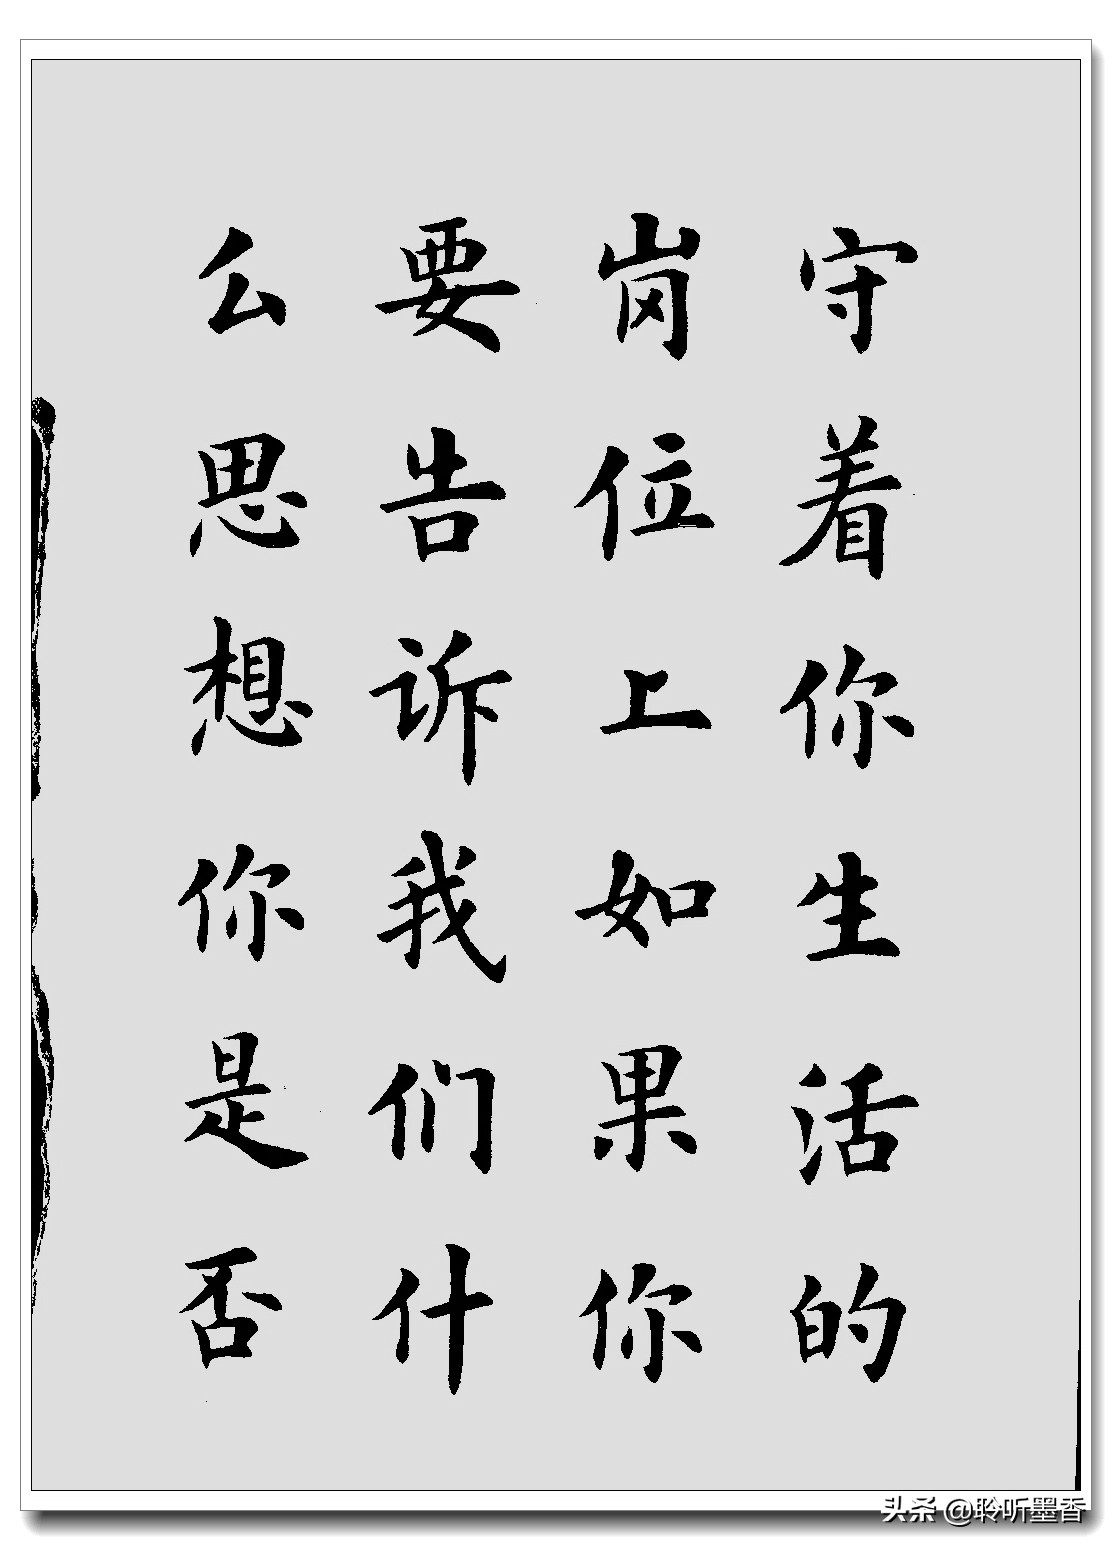 守着你生活的
岗位上如果你
要告诉我们什
么思想你是否
头条 @聆听墨香